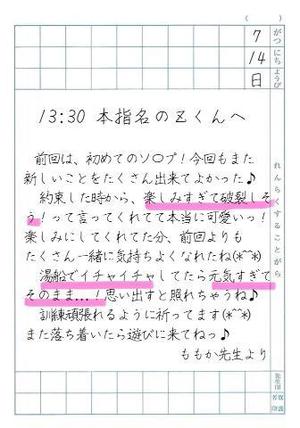 ( )
7 がつ
14 にち
日 ようび
れんらくすることがら
13:30 本指名のZくんへ
前回は、初めてのソ〇プ！今回もまた
新しいことをたくさん出来てよかった♪
約束した時から、楽しみすぎて破裂しそ
う！って言ってくれてて本当に可愛いっ！
楽しみにしてくれてた分、前回よりも
たくさん一緒に気持ちよくなれたね(*^^*)
湯船でイチャイチャしてたら元気すぎて
そのまま...！思い出すと照れちゃうね♪
訓練頑張れるように祈ってます(*^^*)
また落ち着いたら遊びに来てねっ♪
ももか先生より